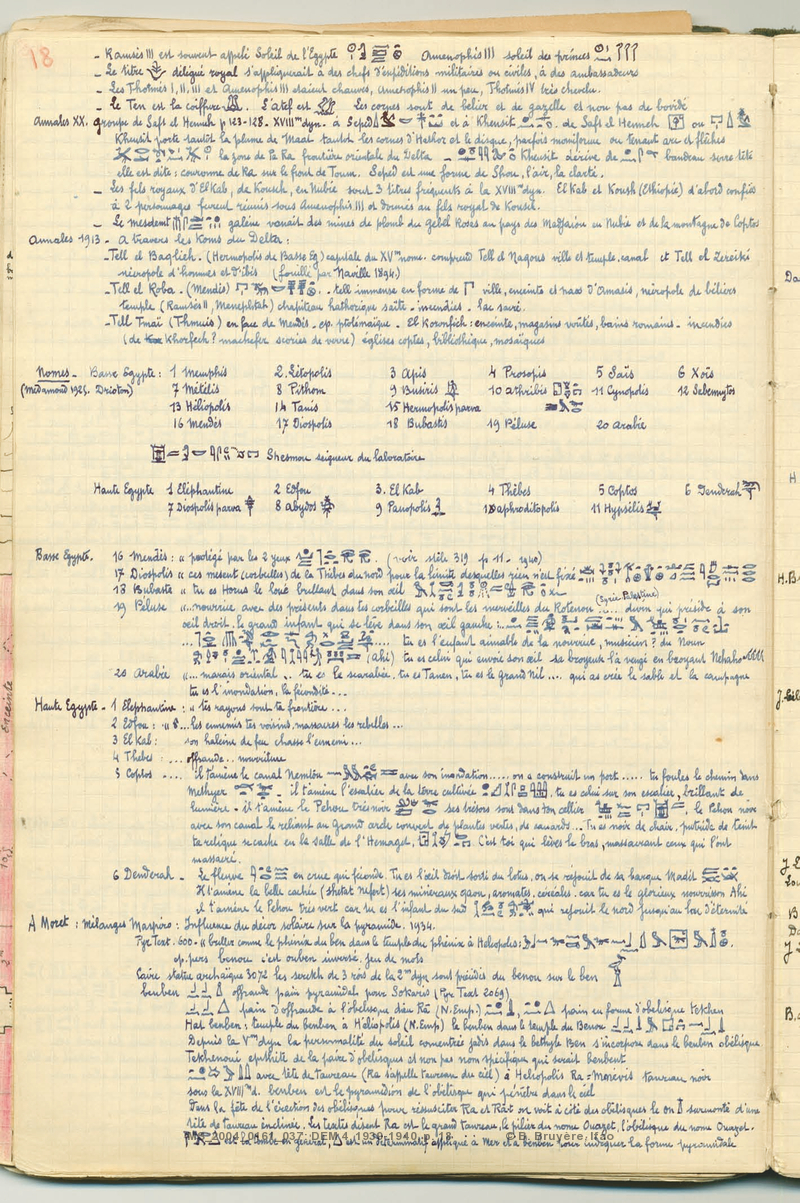 18
- Ramsès III est souvent appelé Soleil de l'Egypte Amenophis III soleil des princes
- Le titre délégué royal s'appliquerait à des chefs d'expéditions militaires ou civiles, à des ambassadeurs
- Les Thotmès I, II, III et Amenophis II étaient chauves, Amenophis III un peu, Thotmès IV très chevelu.
- Le Ten est la coiffure. L'atef est Les cornes sont de belier et de gazelle et non pas de bovidé
Annales XX. groupe de Saft el Henneh p 123-128. XVIIIme dyn. à Seped et à Khensit de Saft el Henneh ou
Khensit porte tantôt la plume de Maat tantôt les cornes d'Hathor et le disque, parfois momiforme ou tenant arc et flèches
la zone de Pa Ra frontière orientale du Delta - Khensit dérive de bandeau serre tête
elle est dite: couronne de Ra sur le front de Toum. Seped est une forme de Shou, l'air, la clarté.
- Les fils royaux d'El Kab, de Koush, en Nubie sont 3 titres fréquents à la XVIIIme dyn. El Kab et Koush (Ethiopie) d'abord confiés
à 2 personnages furent réunis sous Amenophis III et donnés au fils royal de Koush.
- Le mesdemt galène venait des mines de plomb du Gebel Rosas au pays des Madjaiou en Nubie et de la montagne de Coptos
Annales 1913 - A travers les Koms du Delta:
- Tell el Baglieh. (Hermopolis de Basse Eg) capitale du XVme nome. comprend Tell el Nagous ville et temple. canal et Tell el Zereiki
nécropole d'hommes et d'ibis (fouillé par Naville 1892)
- Tell el Roba. (Mendès) - tell immense en forme de ville, enceinte et naos d'Amasis, nécropole de béliers
temple (Ramsès II, Meneptah) chapiteau hathorique saïte - incendies - lac sacré.
- Tell Tmaï (Thmuis) en face de Mendès - ep. ptolémaïque - El Kownfieh: enceinte, magasins voûtés, bains romains - incendies
(de Khorfech? machefer scories de verre) églises coptes, bibliothèque, mosaïques
Nomes - Basse Egypte: 1 Memphis 2 Létopolis 3 Apis 4 Prosopis 5 Saïs 6 Xoïs
(Médamoud 1925. Drioton) 7 Métélis 8 Pithom 9 Busiris 10 Athribis 11 Cynopolis 12 Sebennytos
13 Héliopolis 14 Tanis 15 Hermopolis parva
16 Mendès 17 Diospolis 18 Bubastis 19 Péluse 20 Arabie
Shesmou seigneur du laboratoire
Haute Egypte 1 Eléphantine 2 Edfou 3. El Kab 4 Thèbes 5 Coptos 6 Denderah
7 Diospolis parva 8 Abydos 9 Panopolis 10 Aphroditopolis 11 Hypsélis
Basse Egypte. 16 Mendès: " protégé par les 2 yeux (voir stèle 319 p 11 - 1940)
17 Diospolis " ces mesent (corbeilles) de la Thèbes du nord pour la limite desquelles rien n'est fixé
18 Bubaste " tu es Horus le loué brillant dans son œil
(Syrie Palestine)
19 Péluse "...nourricier avec des présents dans tes corbeilles qui sont les merveilles du Rotenou .... divin qui préside à son
œil droit. le grand infant qui se lève dans son œil gauche:
... tu es l'enfant aimable de la nourrice, musicien? du Noun
(Ahi) tu es celui qui envoie son œil se broyeur l'a rougi en broyant Nehaho
20 Arabie "... marais oriental .. tu es le scarabée. tu es Tanen, tu es le grand Nil .... qui as créé le sable et la campagne
tu es l'inondation, la fécondité...
Haute Egypte - 1 Elephantine: " tes rayons sont ta frontière ...
2 Edfou: "...les ennemis tes voisins, massacres les rebelles ...
3 El Kab: son haleine de feu chasse l'ennemi...
4 Thèbes: ... offrande .. nourriture
5 Coptos .... il t'amène le canal Nemtou avec son inondation ..... on a construit un port ..... tu foules le chemin dans
Methyer - il t'amène l'escalier de la terre cultivée, tu es celui sur son escalier, brillant de
lumière - il t'amène le Pehou très noir ses trésors sont dans ton cellier, le Pehou noir
avec son canal le reliant au Grand arde couvert de plantes vertes, de canards... Tu es noir de chair, putride de teint
ta relique se cache en la salle de l'Hemaget, C'est toi qui lèves le bras, massacrant ceux qui l'ont
massacré.
6 Denderah - Le fleuve en crue qui féconde. Tu es l'œil droit sorti du lotus, on se réjouit de sa barque Madit
Il t'amène la belle cachée (Shetat Nefert) ses minéraux gaou, aromates, céréales. car tu es le glorieux nourrisson Ahi
il t'amène le Pehou très vert car tu es l'infant du sud qui réjouit le nord jusqu'au bout d'éternité
A Moret: mélanges Maspero: Influence du décor solaire sur la pyramide. 1934.
Pyr Text. 600 - " briller comme le phénix du ben dans le temple du phénix à Heliopolis:
ep. pers benou c'est ouben inversé. jeu de mots
Caire statue archaïque 3072 les serekh de 3 rois de la 2me dyn sont présidés du benou sur le ben
benben offrande pain pyramidal pour Sokaris (Pyr Text 2069)
pain d'offrande à l'obelisque dieu Râ (N. Emp.) pain en forme d'obelisque tekhen
Hat benben: temple du benben à Héliopolis (N. Emp) le benben dans le temple du Benou
Depuis la Vme dyn la personnalité du soleil concentrée jadis dans le bethyle Ben s'incorpore dans le benben obélisque
Tekhenoui epithète de la paire d'obelisques et non pas nom spécifique qui serait benbent
avec tête de taureau (Ra s'appelle taureau du ciel) à Heliopolis Ra = Mnevis taureau noir
sous la XVIIIme d. benben est le pyramidion de l'obelisque qui pénètre dans le ciel
Dans la fête de l'érection des obélisques pour ressusciter Ra et Râit on voit à côté des obelisques le on surmonté d'une
tête de taureau inclinée. Les textes disent Ra est le grand taureau, le pilier du nome Ouazet, l'obélisque du nome Ouazet.
MS_2004_0161_037: DEM 4, 1939-1940, p. 18 © B. Bruyère, Ifao